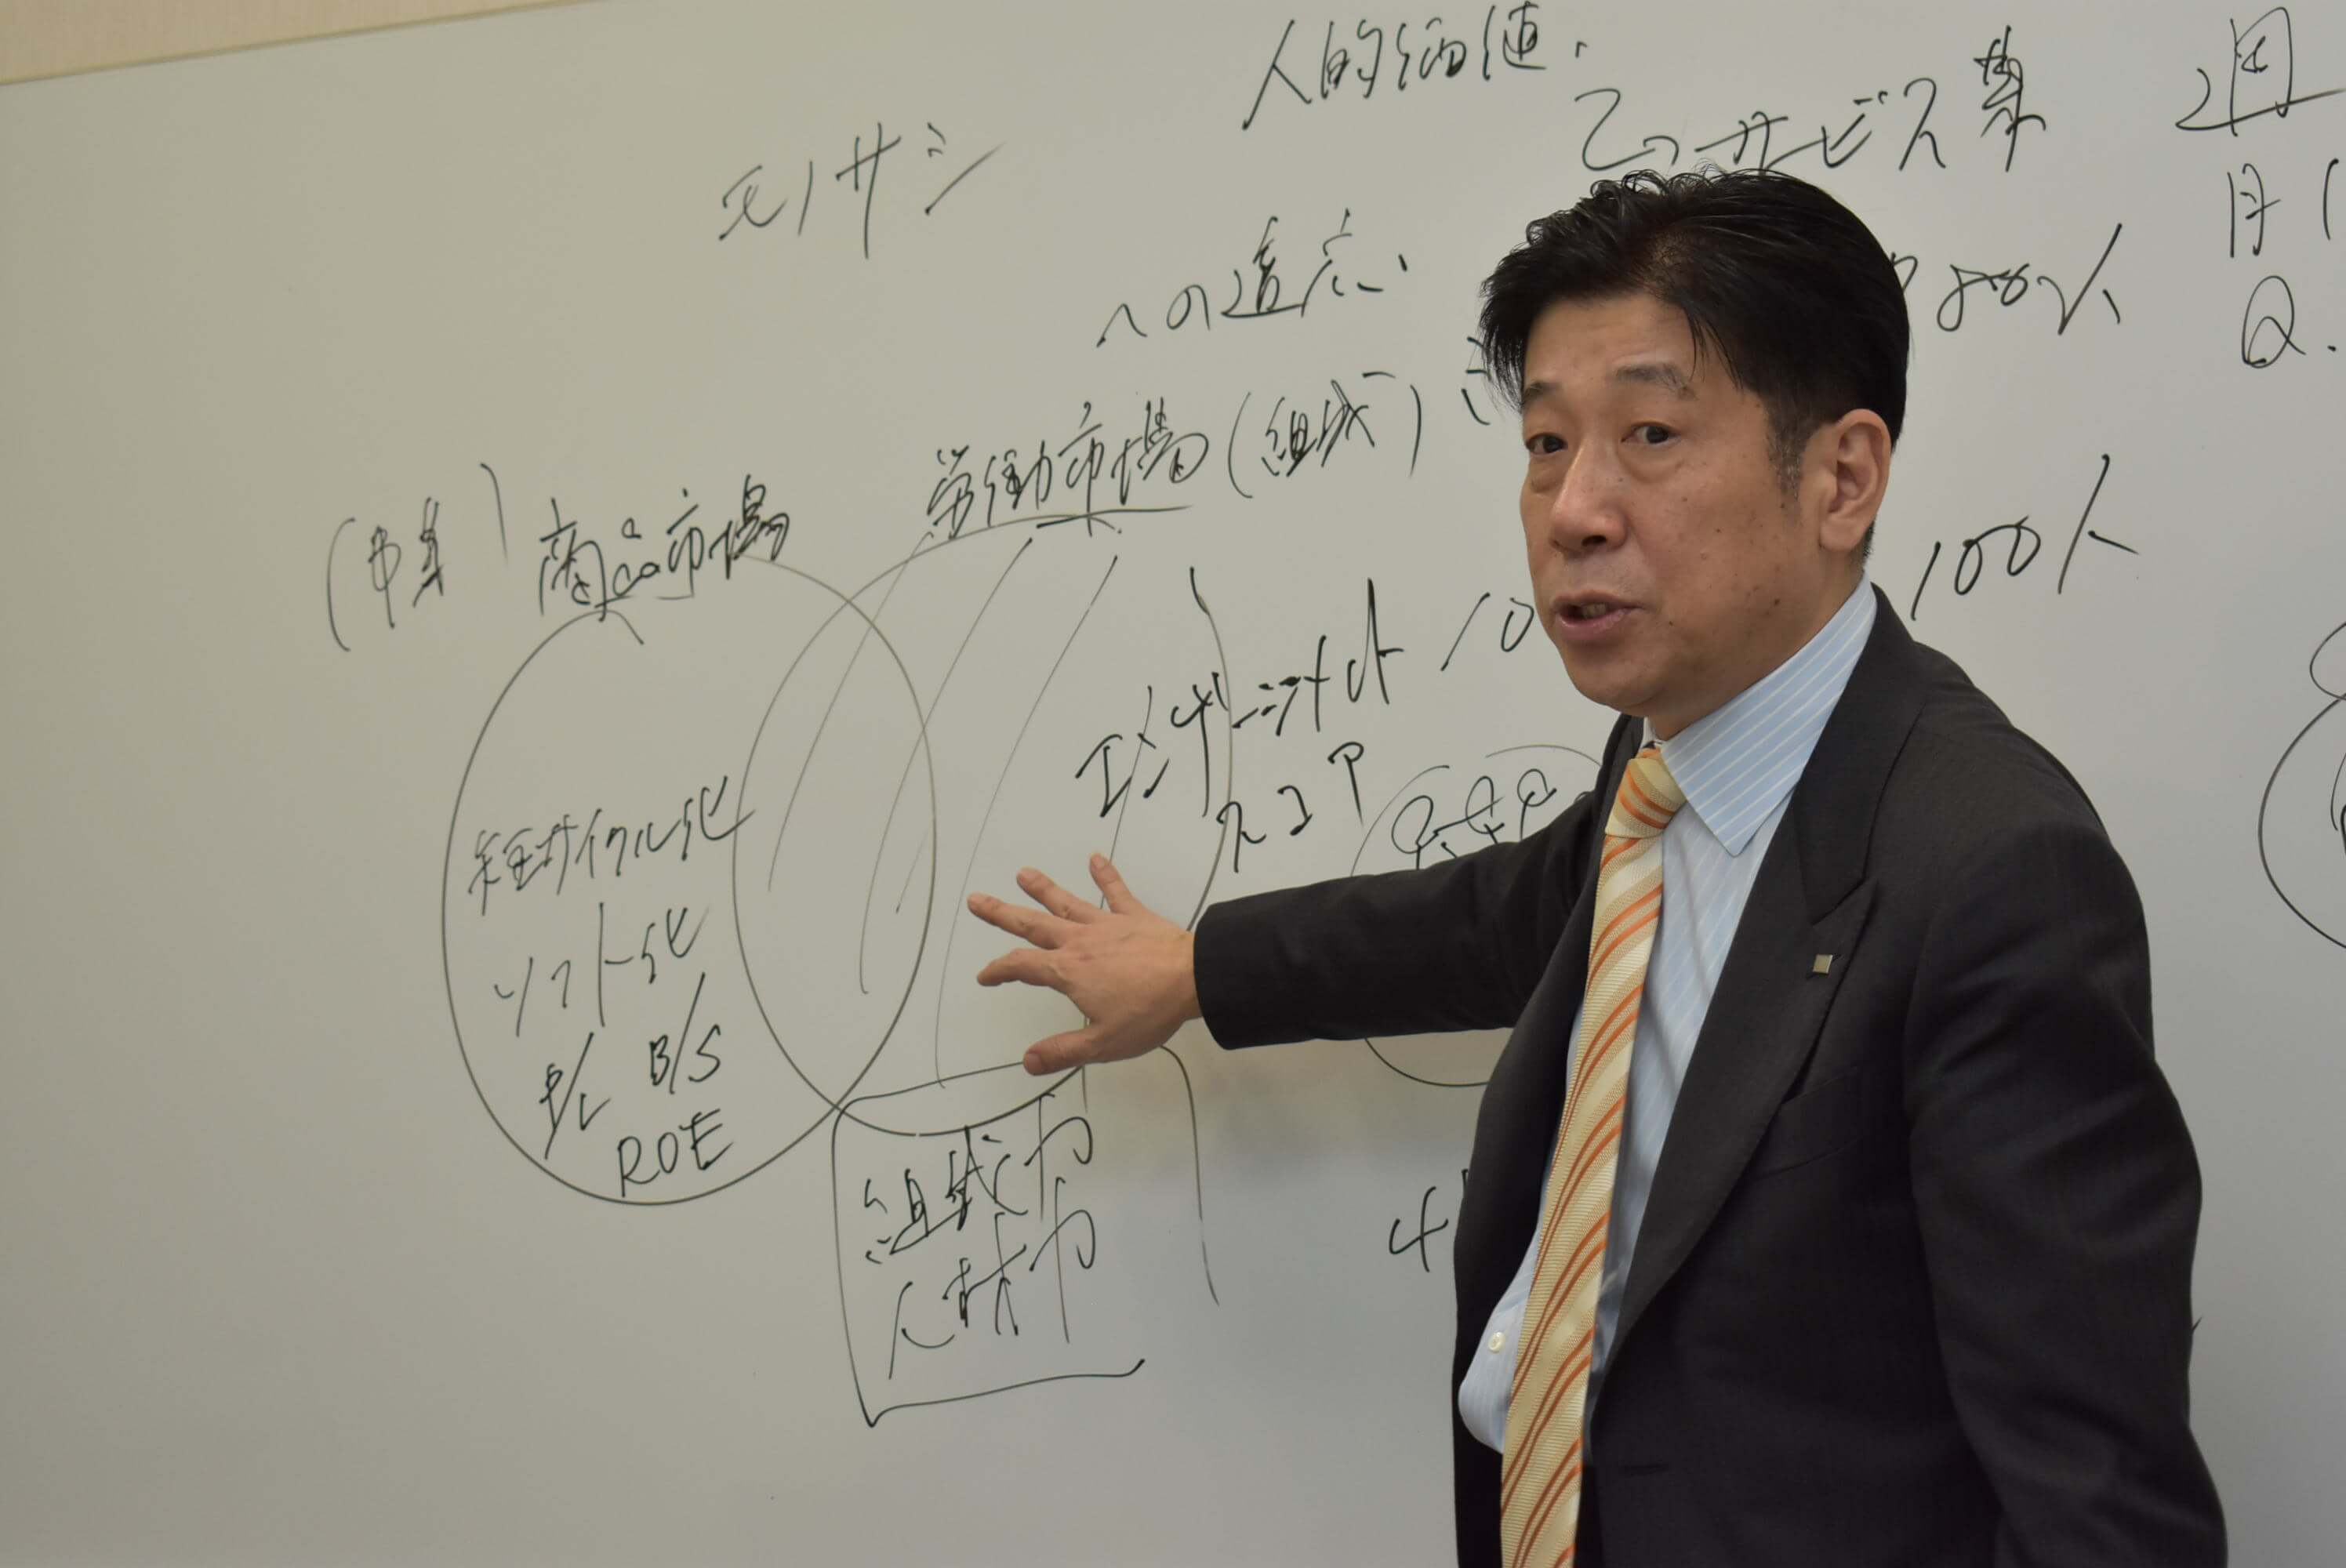 人的価値.
モノサシ
サービス業
週
月1
Q.
への適応.
800人
労働市場(組織)
(事業)商品市場
100人
エンゲージメント 10
スコア
短サイクル化
ソフト化
P/L B/S
ROE
組織力
人材力